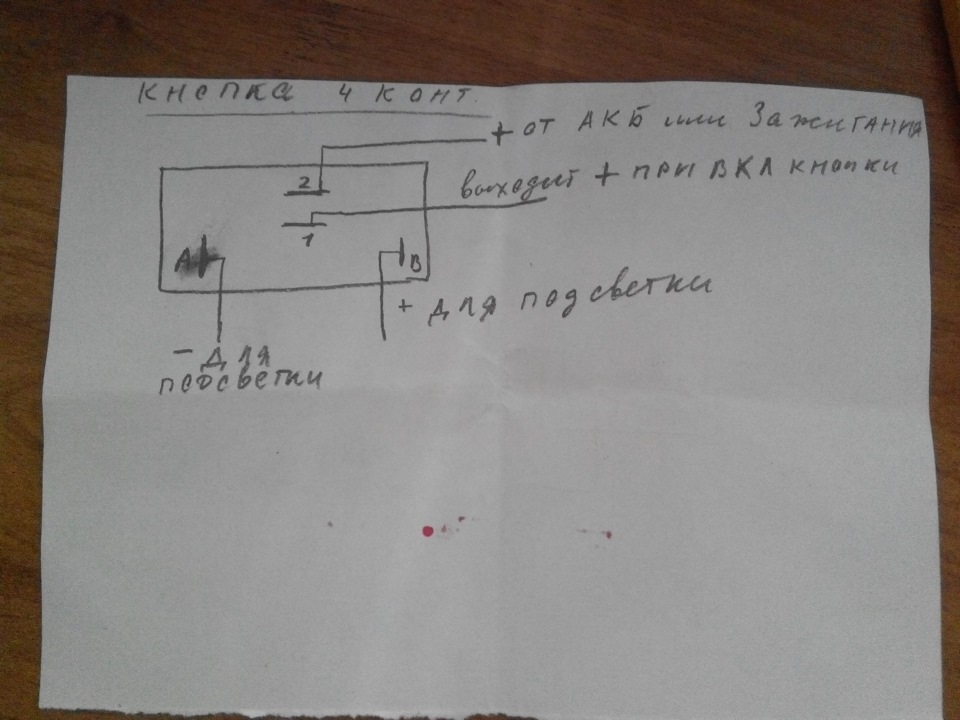 КНОПКА 4 КОНТ.
+ ОТ АКБ или ЗАЖИГАНИЯ
2
выходит + ПРИ ВКЛ КНОПКИ
1
А
В
+ ДЛЯ ПОДСВЕТКИ
- ДЛЯ
ПОДСВЕТКИ